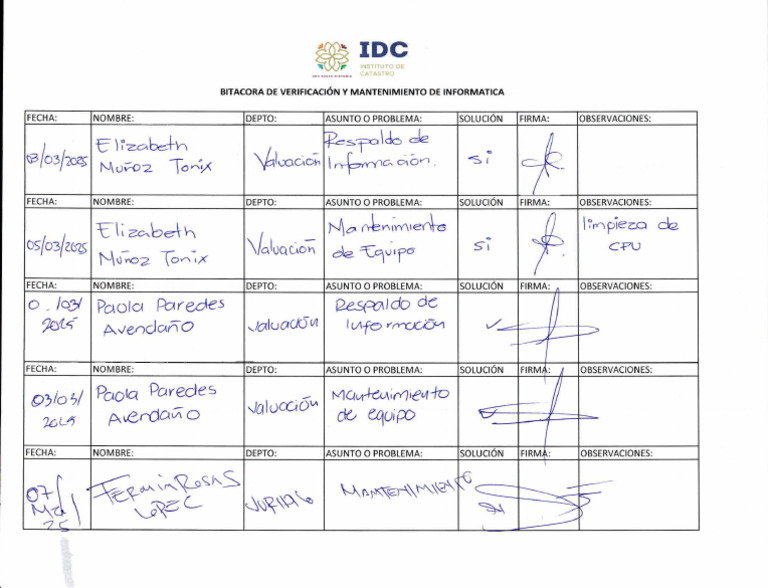 IDC
INSTITUTO DE
CATASTRO
BITACORA DE VERIFICACIÓN Y MANTENIMIENTO DE INFORMATICA
FECHA: NOMBRE: DEPTO: ASUNTO O PROBLEMA: SOLUCIÓN FIRMA: OBSERVACIONES:
03/03/2025 Elizabeth Muñoz Tonix Valuación Respaldo de Información. si
FECHA: NOMBRE: DEPTO: ASUNTO O PROBLEMA: SOLUCIÓN FIRMA: OBSERVACIONES:
05/03/2025 Elizabeth Muñoz Tonix Valuación Mantenimiento de Equipo si limpieza de CPU
FECHA: NOMBRE: DEPTO: ASUNTO O PROBLEMA: SOLUCIÓN FIRMA: OBSERVACIONES:
/03/ 2025 Paola Paredes Avendaño Valuación Respaldo de Información ✓
FECHA: NOMBRE: DEPTO: ASUNTO O PROBLEMA: SOLUCIÓN FIRMA: OBSERVACIONES:
03/03/ 2025 Paola Paredes Avendaño Valuación Mantenimiento de equipo ✓
FECHA: NOMBRE: DEPTO: ASUNTO O PROBLEMA: SOLUCIÓN FIRMA: OBSERVACIONES:
07/ Fermin Rosas MANTENIMIENTO